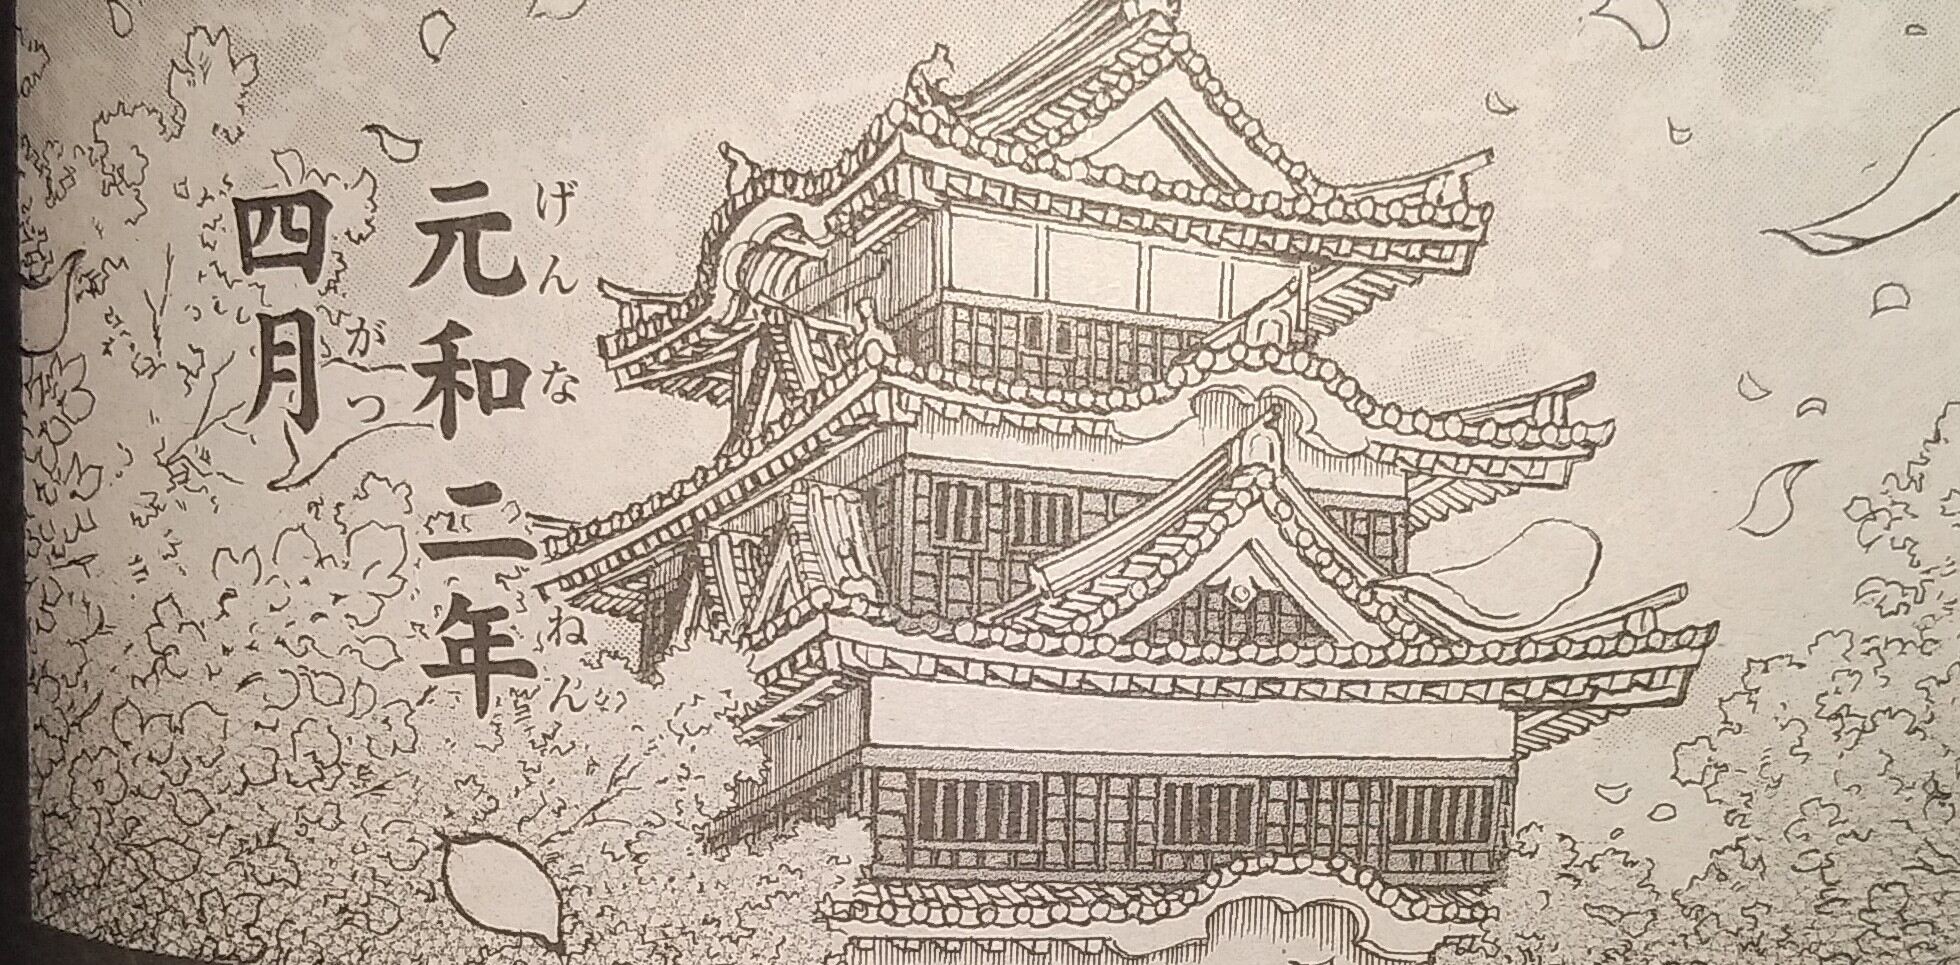 元和二年
げんな ねん
四月
がつ